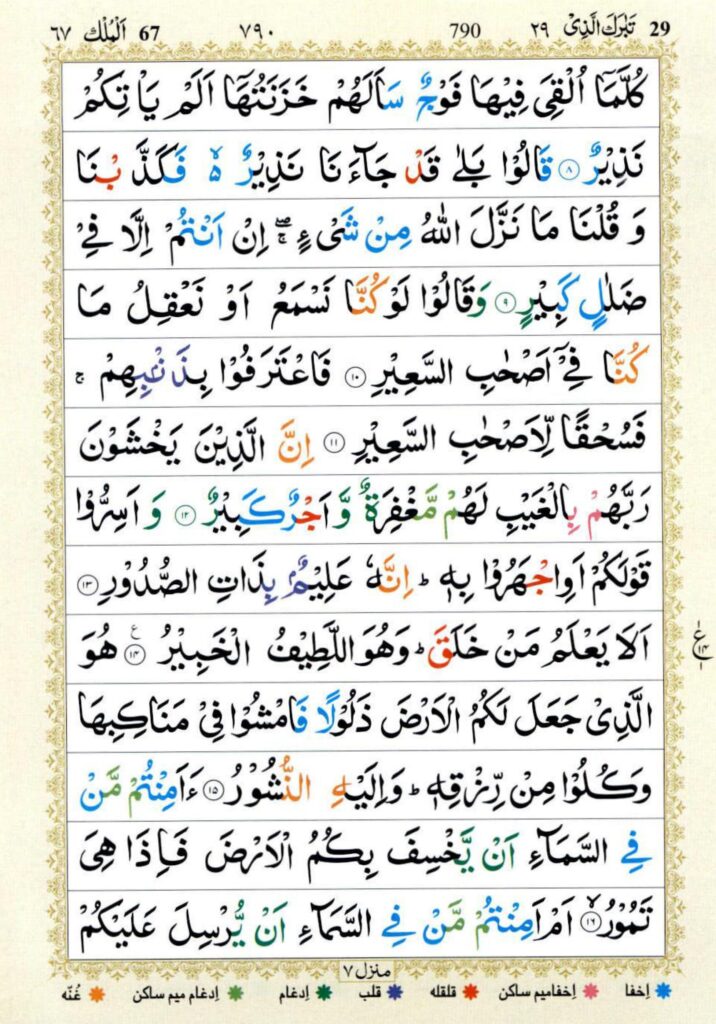 29 تَبٰرَكَ الَّذِیْ ٢٩ 790 ٧٩٠ 67 اَلْمُلْك ٦٧
كُلَّمَاۤ اُلْقِیَ فِیْهَا فَوْجٌ سَاَلَهُمْ خَزَنَتُهَاۤ اَلَمْ یَاْتِكُمْ
نَذِیْرٌ ۸ قَالُوْا بَلٰی قَدْ جَآءَنَا نَذِیْرٌ ۙ۬ فَكَذَّبْنَا
وَ قُلْنَا مَا نَزَّلَ اللّٰهُ مِنْ شَیْءٍ ۚۖ اِنْ اَنْتُمْ اِلَّا فِیْ
ضَلٰلٍ كَبِیْرٍ ۹ وَقَالُوْا لَوْ كُنَّا نَسْمَعُ اَوْ نَعْقِلُ مَا
كُنَّا فِیْۤ اَصْحٰبِ السَّعِیْرِ ۱۰ فَاعْتَرَفُوْا بِذَنْۢبِهِمْ ۚ
فَسُحْقًا لِّاَصْحٰبِ السَّعِیْرِ ۱۱ اِنَّ الَّذِیْنَ یَخْشَوْنَ
رَبَّهُمْ بِالْغَیْبِ لَهُمْ مَّغْفِرَةٌ وَّ اَجْرٌ كَبِیْرٌ ۱۲ وَ اَسِرُّوْا
قَوْلَكُمْ اَوِ اجْهَرُوْا بِهٖ ؕ اِنَّهٗ عَلِیْمٌۢ بِذَاتِ الصُّدُوْرِ ۱۳
اَلَا یَعْلَمُ مَنْ خَلَقَ ؕ وَهُوَ اللَّطِیْفُ الْخَبِیْرُ ۱۴ ع هُوَ
ع ۱۴
الَّذِیْ جَعَلَ لَكُمُ الْاَرْضَ ذَلُوْلًا فَامْشُوْا فِیْ مَنَاكِبِهَا
وَكُلُوْا مِنْ رِّزْقِهٖ ؕ وَاِلَیْهِ النُّشُوْرُ ۱۵ ءَاَمِنْتُمْ مَّنْ
فِی السَّمَآءِ اَنْ یَّخْسِفَ بِكُمُ الْاَرْضَ فَاِذَا هِیَ
تَمُوْرُ ۙ ۱۶ اَمْ اَمِنْتُمْ مَّنْ فِی السَّمَآءِ اَنْ یُّرْسِلَ عَلَیْكُمْ
منزل ٧
اِخفا اِخفامیم ساکن قلقله قلب اِدغام اِدغام میم ساکن غُنّه